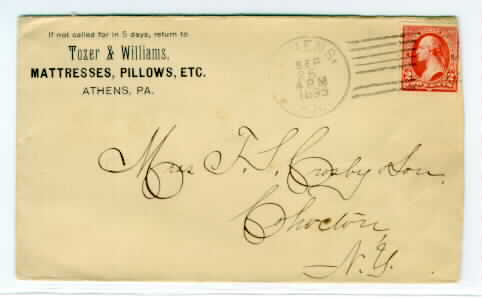 If not called for in 5 days, return to
Tozer & Williams,
MATTRESSES, PILLOWS, ETC.
ATHENS, PA.
ATHENS
SEP
25
4 PM
1895
2 2
T. S. Crosby & Son,
Cohocton,
N.Y.